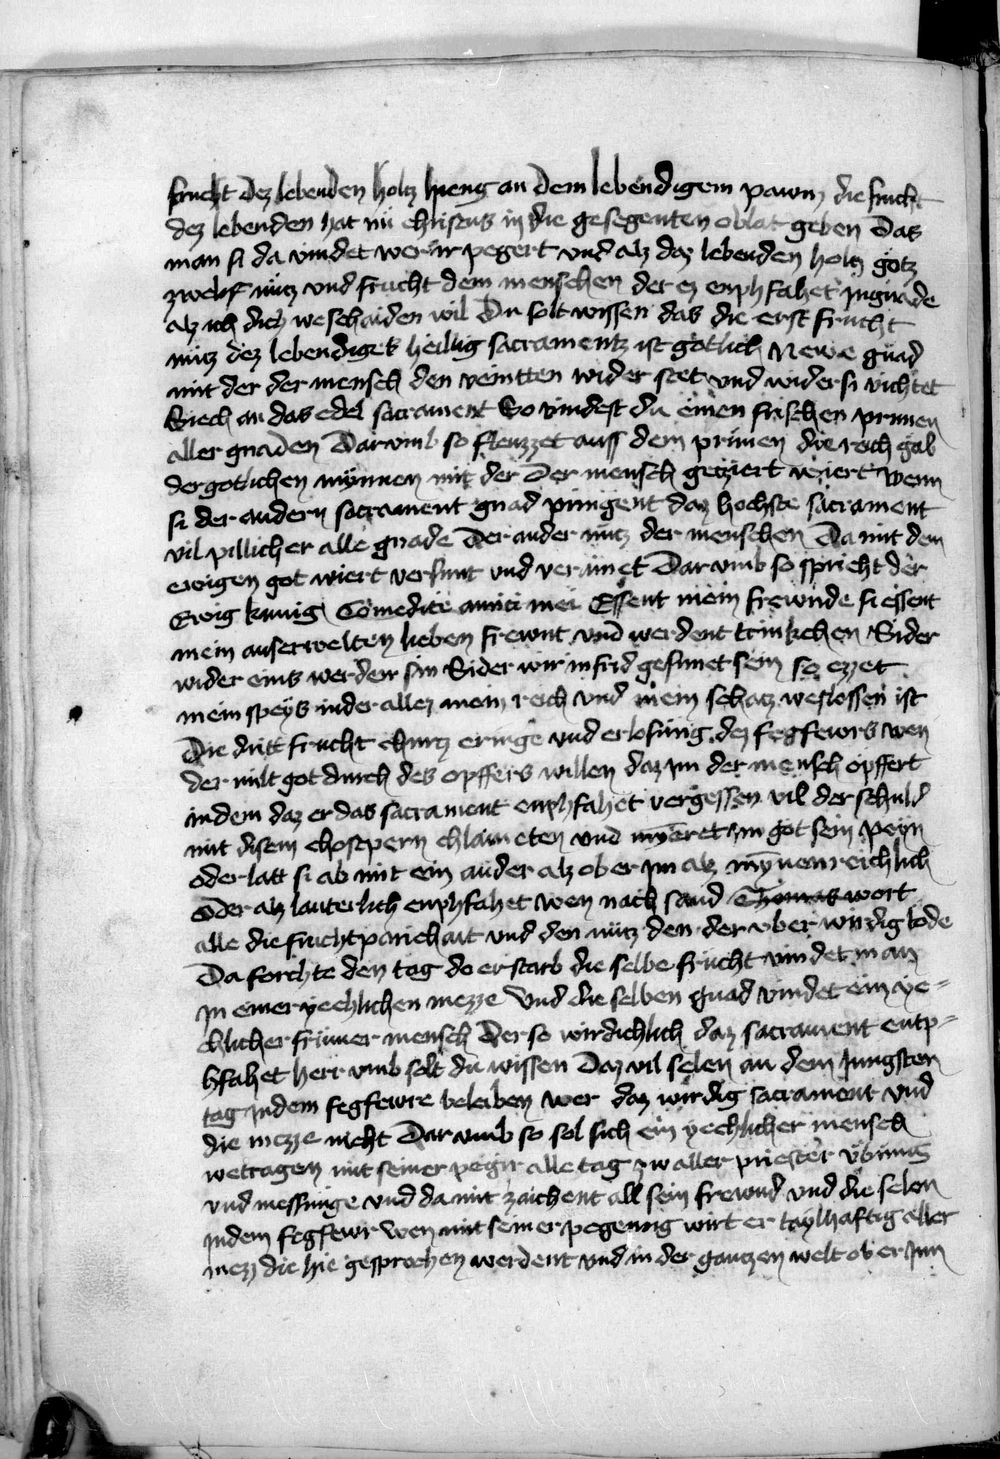 frucht dez lebenden holtz hieng an dem lebendigem pawm die frucht
dez lebenden hat nu christus in die gesegenten oblat geben Das
man si da vindet wer ir pegert vnd alz daz lebenden holtz gotz
zwelf nutz vnd frucht dem menschen der ez enphfahet in gnade
alz ich dich weschaiden wil Du solt wissen das die erst frucht
nutz dez lebendigen heilig sacramentz ist gotlich newe gnad
mit der der mensch den veintten wider stet vnd wider si vichtet
Riech an das edel sacrament So vindest du einen frischen prunen
aller gnaden Dar vmb so fleuzzet auss dem prunen die reich gab
der gotlichen mynnen mit der Der mensch geziert wiert Wenn
si der andern sacrament gnad pringent daz hochste sacrament
vil pillicher alle gnade Der ander nutz der menschen Da mit dem
ewigen got wiert versunt vnd verainet Dar vmb so spricht der
Ewig kunig Comedite amici mei Essent mein frewnde si essent
mein auserwelten lieben frewnt vnd werdent trinkchen Sider
wider eins werden sin Sider wir in frid gesunet sein so ezzet
mein speys in der allez mein reich vnd mein schatz weslossen ist
Die dritt frucht churtz eringe vnd erlosung dez fegfewrs wen
der milt got durch des opffers willen daz im der mensch opffert
in dem daz er das sacrament enphfahet vergessen wil der schuld
mit disem chospern chlaineten vnd mynret im got sein peyn
oder latt si ab mit ein ander alz ob er im alz mynnenreichlich
oder alz lauterlich enphfahet wen nach sand Thomas wort
alle die fruchtparichait vnd den nutz den der vber wirdig tode
Da forchte den tag do er starb die selbe frucht vindet man
in einer yechlichen mezze Vnd die selben gnad vindet ein ye=
chlicher frumer mensch Der so wirdichlich daz sacrament entp=
hfahet herr vmb solt du wissen Daz vil selen an dem Jungsten
tag in dem fegfewre beleiben wer daz wirdig sacrament vnd
die mezze nicht Dar vmb so sol sich ein yechlicher mensch
wetragen mit seiner pegir alle tag zw aller priester vbung
vnd messinge vnd da mit zaichent all sein frewnd vnd die selen
in dem fegfewr wen mit seiner pegerung wirt er taylhaftig aller
mezz die hie gesprochen werdent vnd in der gantzen welt ob er im